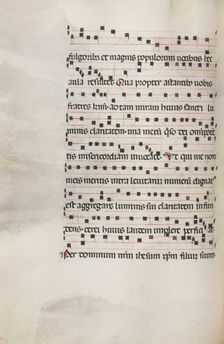 fulgoribus et magnis populorum uocibus hec
aula resultet. Qua propter astantib; uobis
fratres kmi ad tam miram huius sancti lu
minis claritatem una mecū q̄so dei omnipot
tis misericordiam inuocate. Ut qui me non
meis meritis intra leuitarū numerū dignat
est aggregare luminis sui claritatem infun
dens cerei huius laudem implere perfici
Per dominum nr̄m ihesum xp̄m filium suum